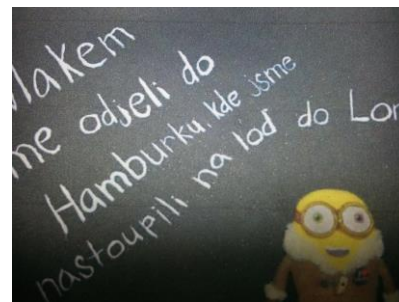 vlakem
me odjeli do
Hamburku, kde jsme
nastoupili na loď do Lon